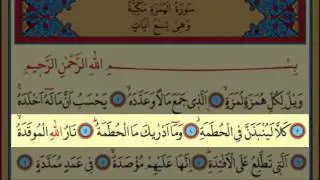 سُورَةُ الْهُمَزَةِ مَكِّيَّةٌ
وَهِيَ تِسْعُ اٰيَاتٍ
بِسْمِ اللّٰهِ الرَّحْمٰنِ الرَّحِيمِ
وَيْلٌ لِكُلِّ هُمَزَةٍ لُمَزَةٍ ﴿١﴾ اَلَّذٖى جَمَعَ مَالًا وَعَدَّدَهُ ﴿٢﴾ يَحْسَبُ اَنَّ مَالَهُٓ اَخْلَدَهُ ﴿٣﴾
كَلَّا لَيُنْبَذَنَّ فِى الْحُطَمَةِ ﴿٤﴾ وَمَٓا اَدْرٰيكَ مَا الْحُطَمَةُ ﴿٥﴾ نَارُ اللّٰهِ الْمُوقَدَةُ ﴿٦﴾
اَلَّتٖى تَطَّلِعُ عَلَى الْاَفْـِٔدَةِ ﴿٧﴾ اِنَّهَا عَلَيْهِمْ مُؤْصَدَةٌ ﴿٨﴾ فٖى عَمَدٍ مُمَدَّدَةٍ ﴿٩﴾